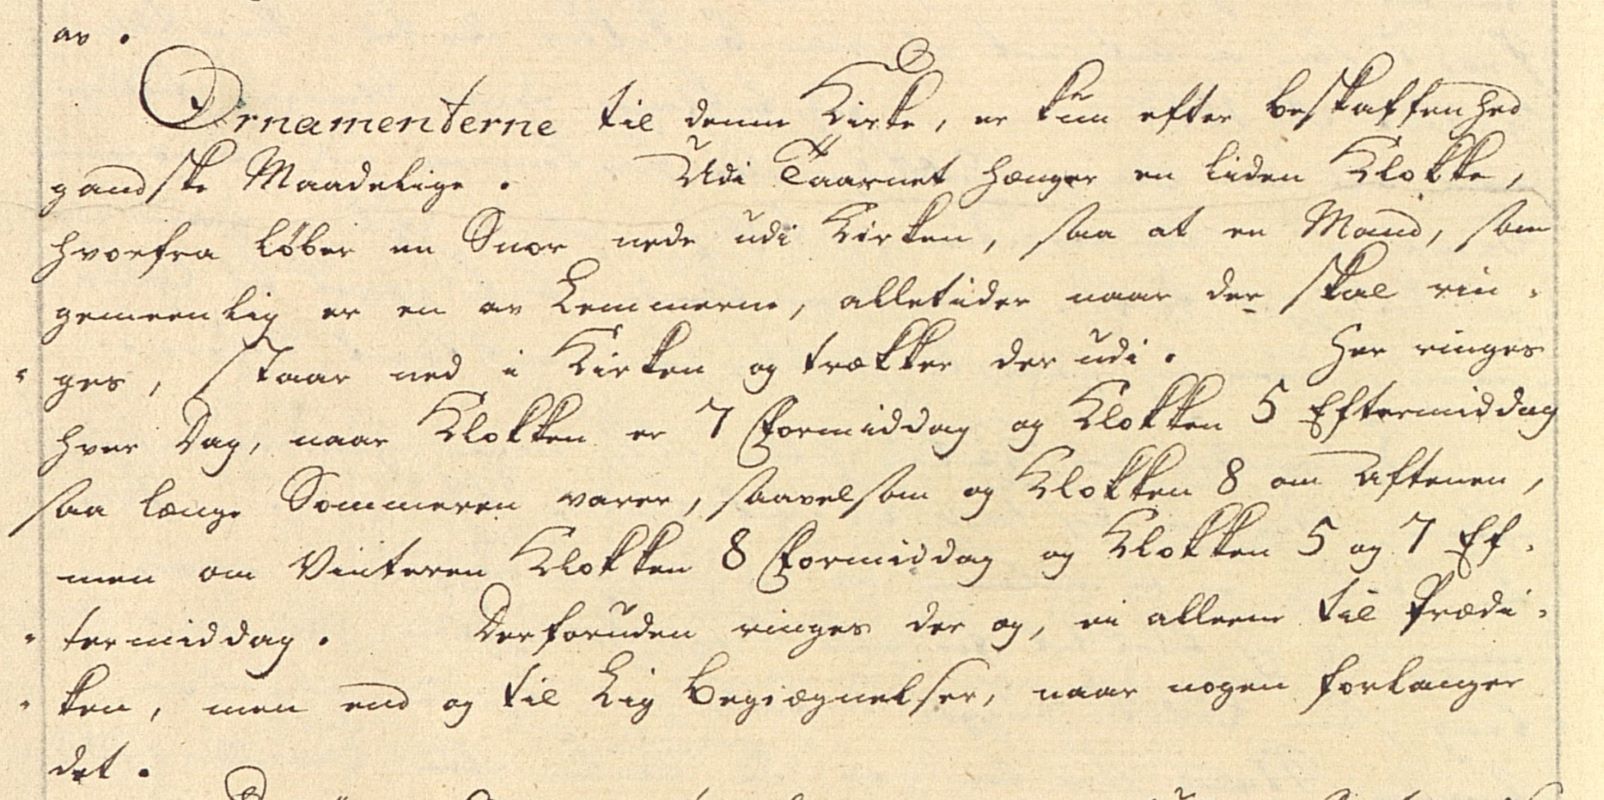 av.
Ornamenterne til denne Kirke, er kun efter beskaffenhed
gandske Maadelige. Udi Taarnet hænger en liden Klokke,
hvorfra løber en Snor nede udi Kirken, saa at en Mand, som
gemeenlig er en av Lemmerne, alletider naar der skal rin-
ges, staar ned i Kirken og trækker der udi. Her ringes
hver Dag, naar Klokken er 7 Formiddag og Klokken 5 Eftermiddag
saa længe Sommeren varer, saavelsom og Klokken 8 om Aftenen,
men om Vinteren Klokken 8 Formiddag og Klokken 5 og 7 Ef-
termiddag. Desforuden ringes der og, ei alleene til Prædi-
ken, men end og til Lig Begiægnelser, naar nogen forlanger
det.